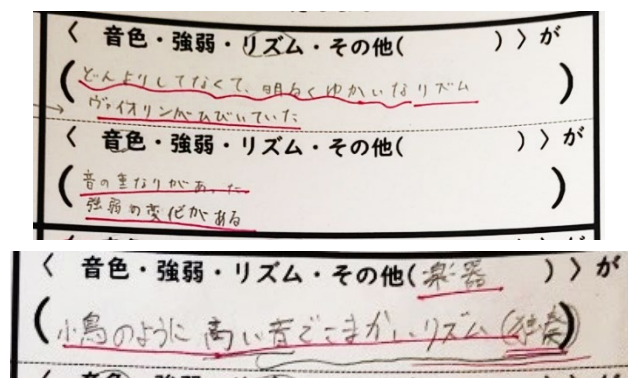 〈 音色・強弱・リズム・その他(　　　) 〉が
(どんよりしてなくて、明るくゆかいなリズム
ヴァイオリンがひびいていた)
〈 音色・強弱・リズム・その他(　　　) 〉が
(音の重なりがあった
強弱の変化がある)
〈 音色・強弱・リズム・その他(楽器) 〉が
(小鳥のように高い音でこまかいリズム(独奏))